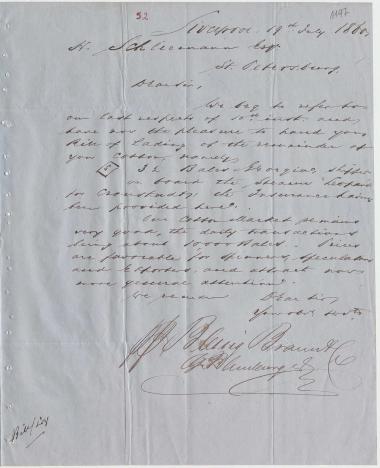 52
1147
Liverpool 19th July 1860
H. Schliemann Esqr
St. Petersburg.
Dear Sir,
We beg to refer to
our last respects of 10th inst. and
have now the pleasure to hand you
Bill of Lading of the remainder of
your Cotton, namely
32 Bales Georgia, shipped
on board the Steamer Leopard
for Cronstadt; the Insurance having
been provided here.
Our Cotton Market remains
very good, the daily transactions
being about 10,000 Bales. Prices
are favorable for spinners, speculators
and Exporters, and attract now
more general attention.
We remain Dear Sir,
Your obt. Servts